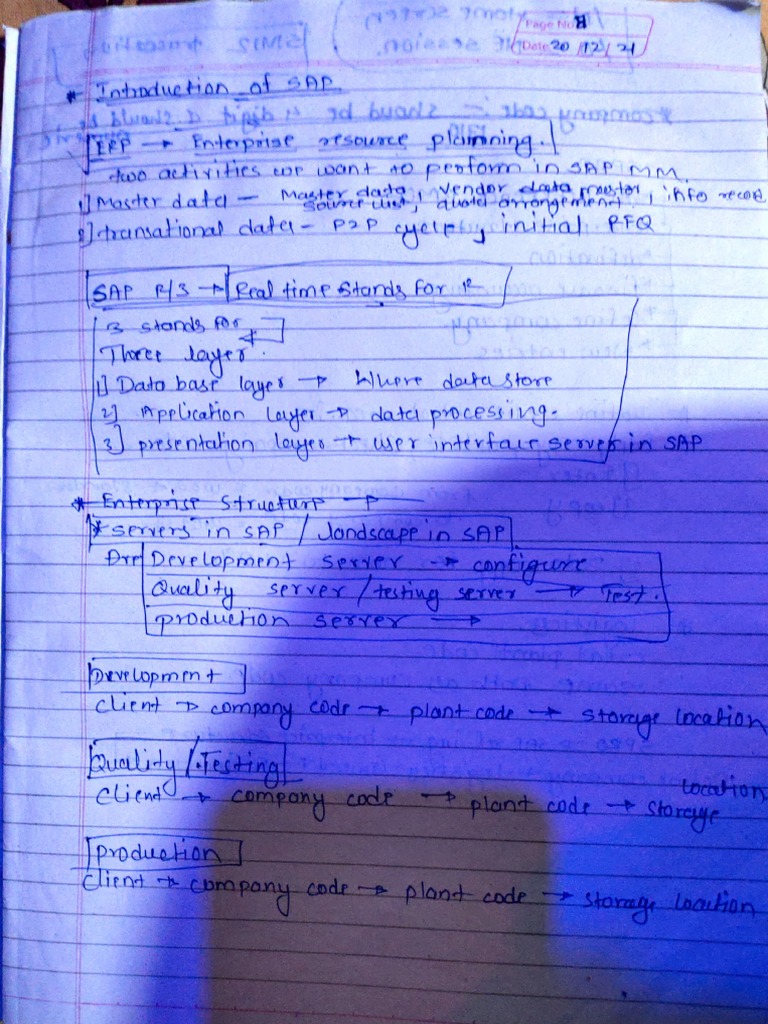 Page No.
Date 20/12/21
* Introduction of SAP
ERP → Enterprise resource planning.
two activities we want to perform in SAP MM.
1] Master data - Master data, vendor data master, info record
source list, quota arrangement.
2] transational data - P2P cycle, initial RFQ
SAP R/3 → Real time stands for R
3 stands for
Three layer.
1] Data base layer → Where data store
2] Application layer → data processing.
3] presentation layer → user interface server in SAP
* Enterprise structure →
* servers in SAP / landscape in SAP
Are Development server → configure
Quality server / testing server → Test.
production server →
Development
client → company code → plant code → storage location
Quality / Testing
client → company code → plant code → storage location
production
client → company code → plant code → storage location